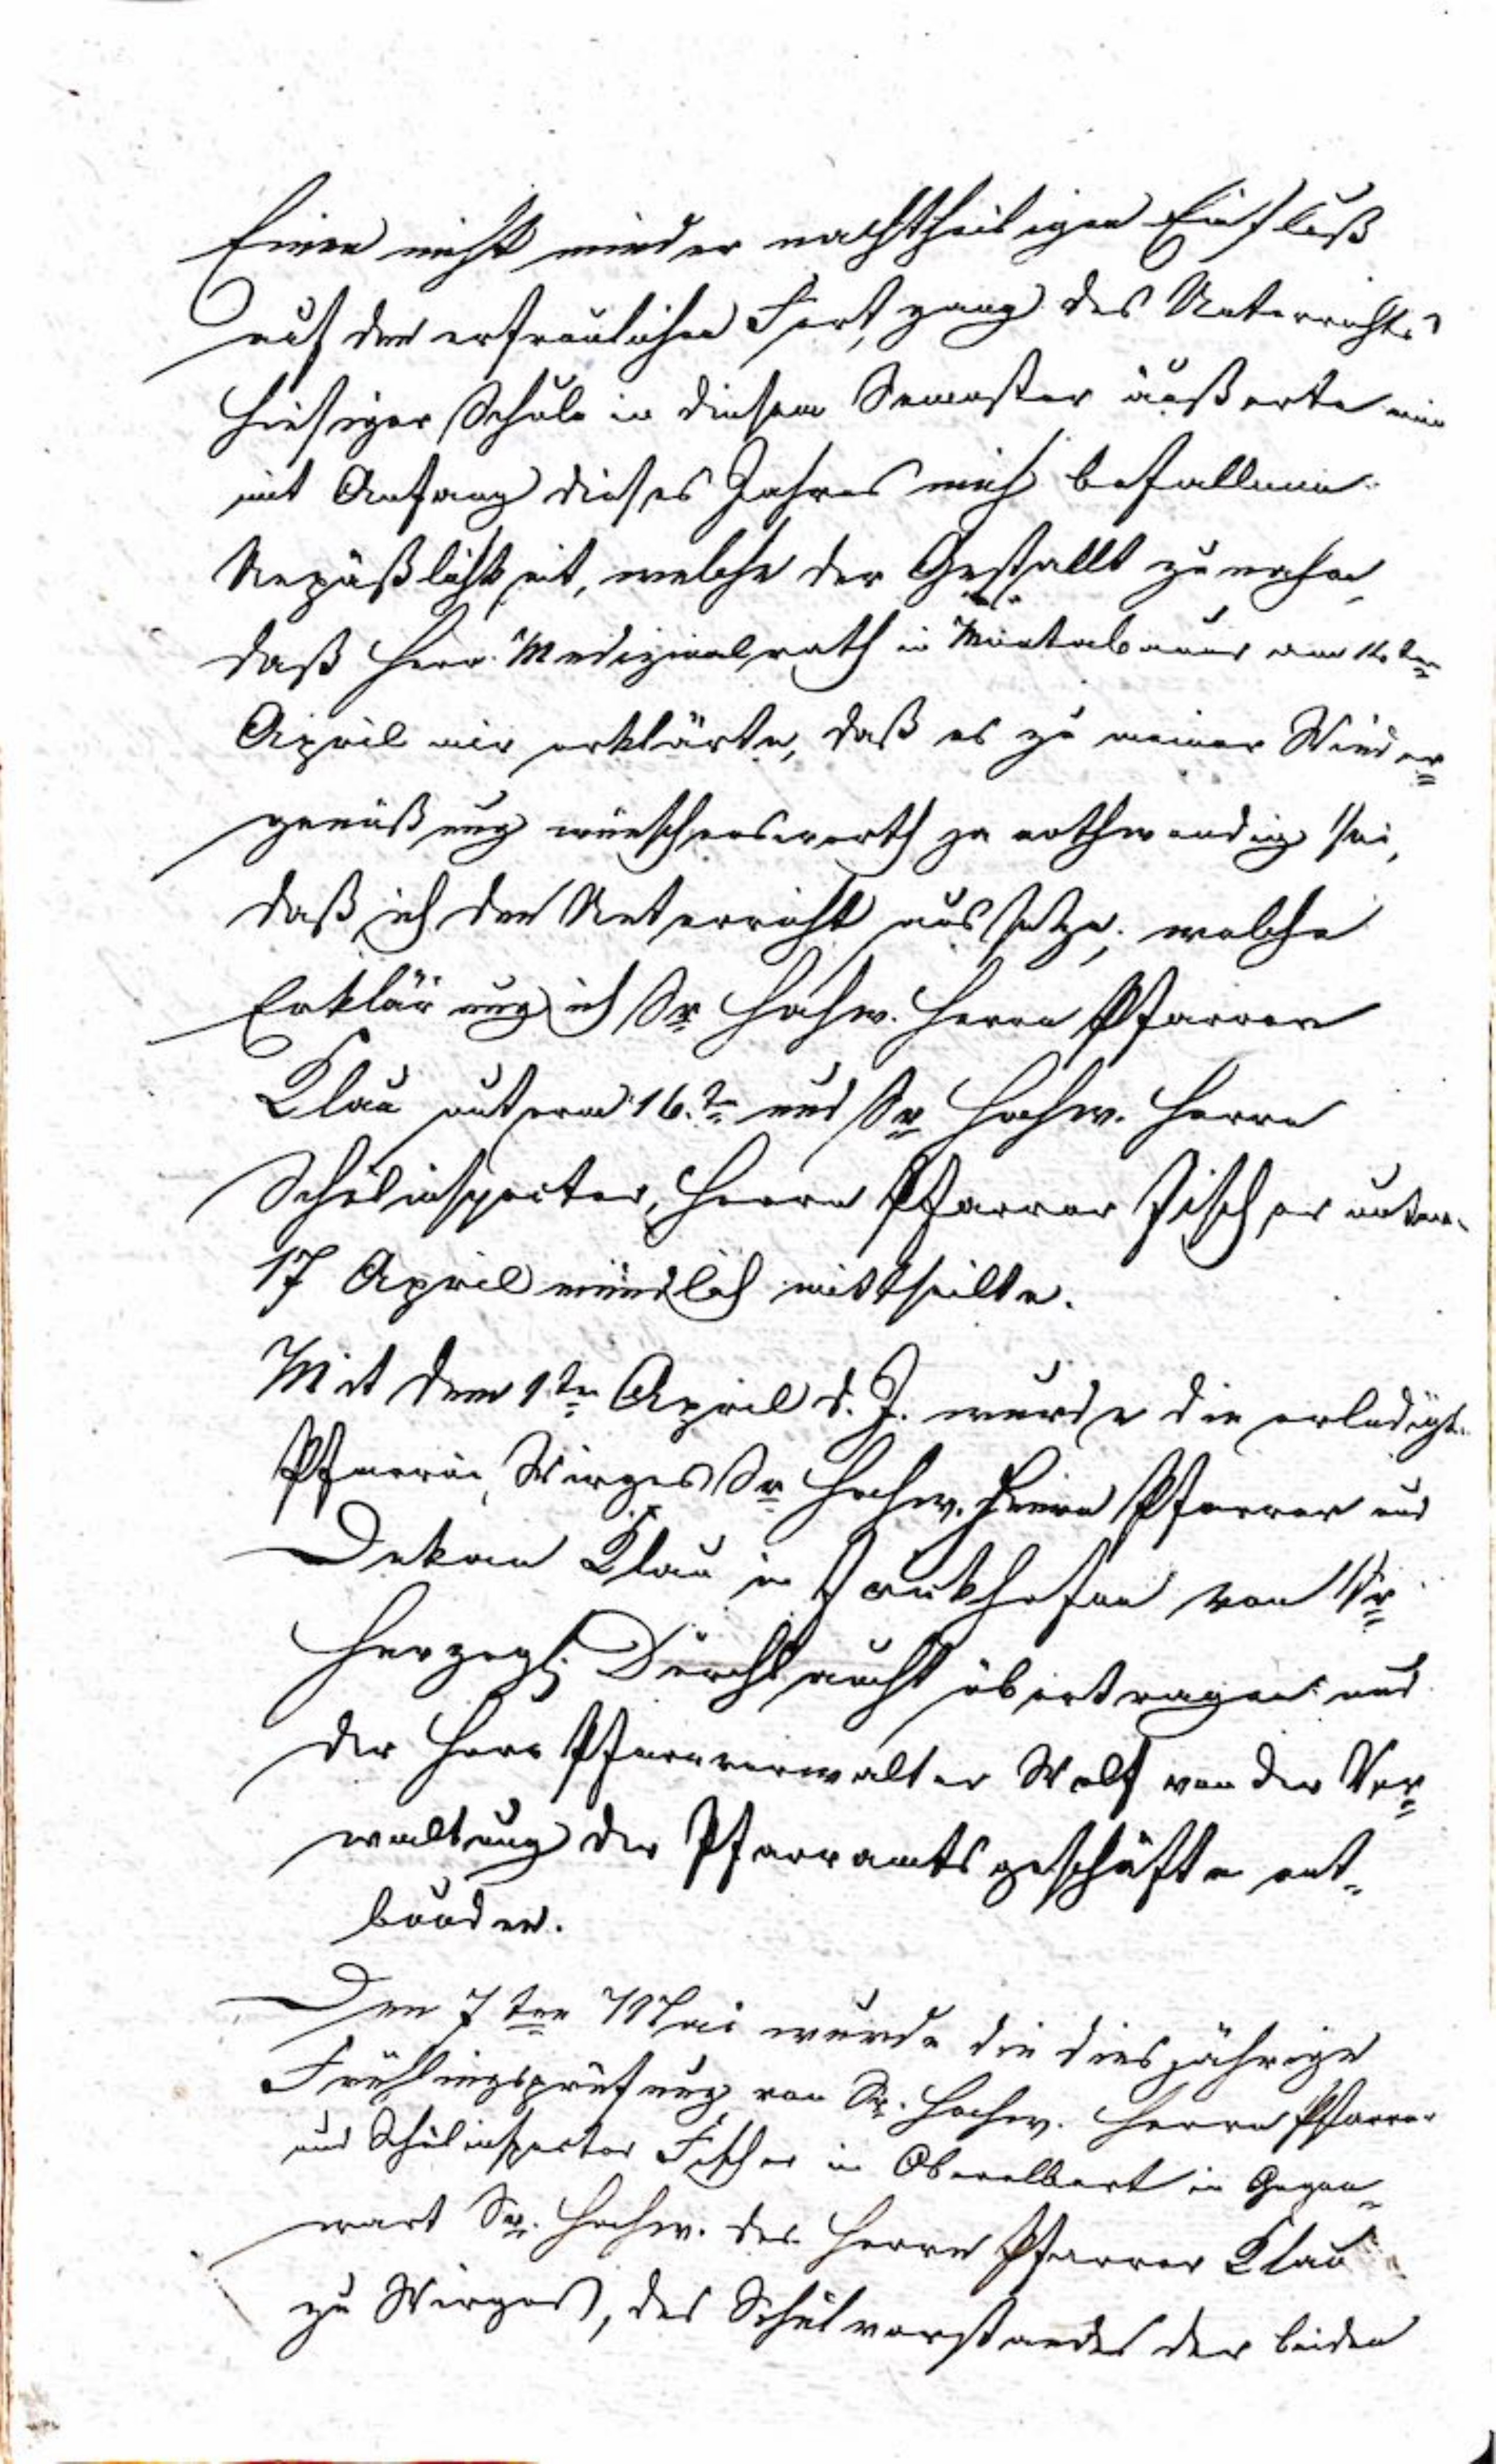 Einen nicht minder nachtheiligen Einfluß
auf den erfreulichen Fortgang des Unterrichts
hiesiger Schule in diesem Semester äußerte eine
mit Anfang dieses Jahres mich befallene
Unpäßlichkeit, welche der Gestallt zunahm,
daß Herr Medizinalrath in Montabaur am ten
April mir erklärte, daß es zu meiner Wieder=
genesung wünschenswerth ja nothwendig sei,
daß ich den Unterricht aussetze; welche
Erklärung ich Sr Hochw. Herrn Pfarrer
Klau unterm 16.ten und Sr Hochw. Herrn
Schulinspector, Herrn Pfarrer Fischer unterm
17 April mündlich mittheilte.
Mit dem 1ten April d. J. wurde die erledigte
Pfarrei Wirges Sr Hochw. Herrn Pfarrer und
Dekan Klau in von Sr
Herzogl. Durchlaucht übertragen und
der Herr Pfarrverwalter Wolf von der Ver=
waltung der Pfarramtsgeschäfte ent=
bunden.
Den 7ten Mai wurde die diesjährige
Frühlingsprüfung von Sr. Hochw. Herrn Pfarrer
und Schulinspector Fischer in Oberelbert in Gegen=
wart Sr. Hochw. des Herrn Pfarrer Klau
zu Wirges, des Schulvorstandes der beiden